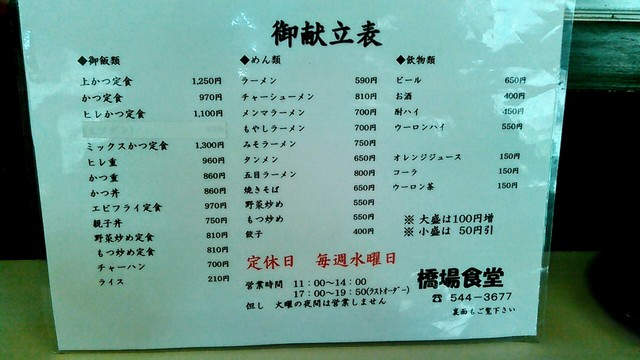 御献立表
◆御飯類
上かつ定食 1,250円
かつ定食 970円
ヒレかつ定食 1,100円
ミックスかつ定食 1,300円
ヒレ重 960円
かつ重 860円
かつ丼 860円
エビフライ定食 970円
親子丼 750円
野菜炒め定食 810円
もつ炒め定食 810円
チャーハン 700円
ライス 210円
◆めん類
ラーメン 590円
チャーシューメン 810円
メンマラーメン 700円
もやしラーメン 700円
みそラーメン 750円
タンメン 650円
五目ラーメン 800円
焼きそば 650円
野菜炒め 550円
もつ炒め 550円
餃子 400円
◆飲物類
ビール 650円
お酒 400円
酎ハイ 450円
ウーロンハイ 550円
オレンジジュース 150円
コーラ 150円
ウーロン茶 150円
※ 大盛は100円増
※ 小盛は 50円引
定休日 毎週水曜日
営業時間 11:00～14:00
17:00～19:50(ラストオーダー)
但し 火曜の夜間は営業しません
橋場食堂
☎ 544-3677
裏面もご覧下さい